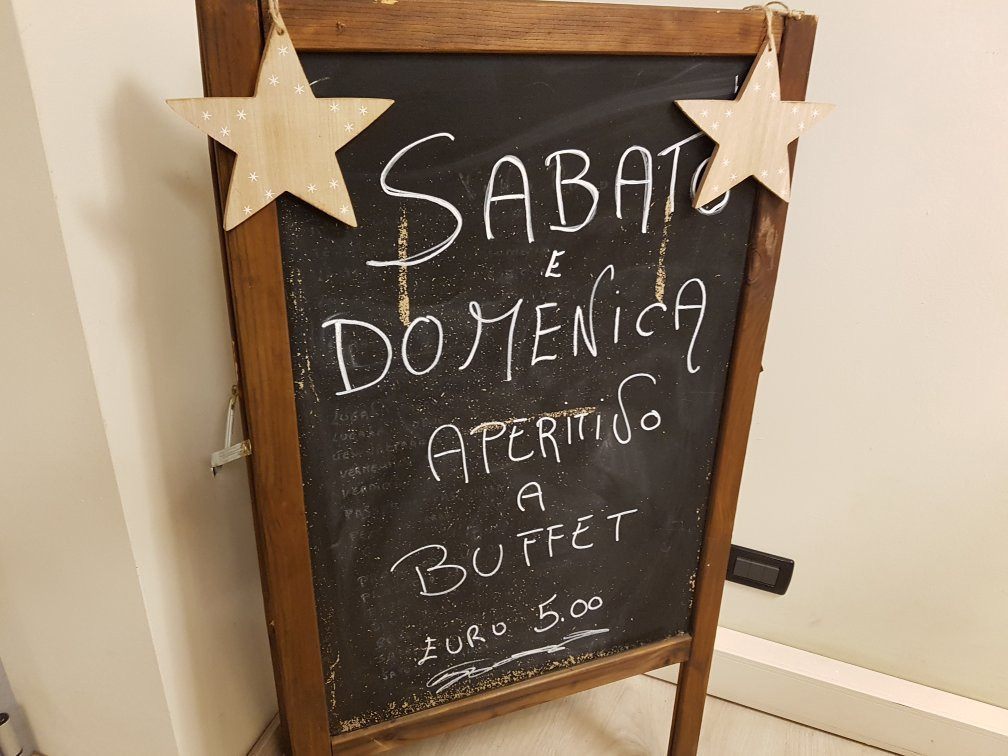 SABATO
E
DOMENICA
APERITIVO
A
BUFFET
EURO 5.00